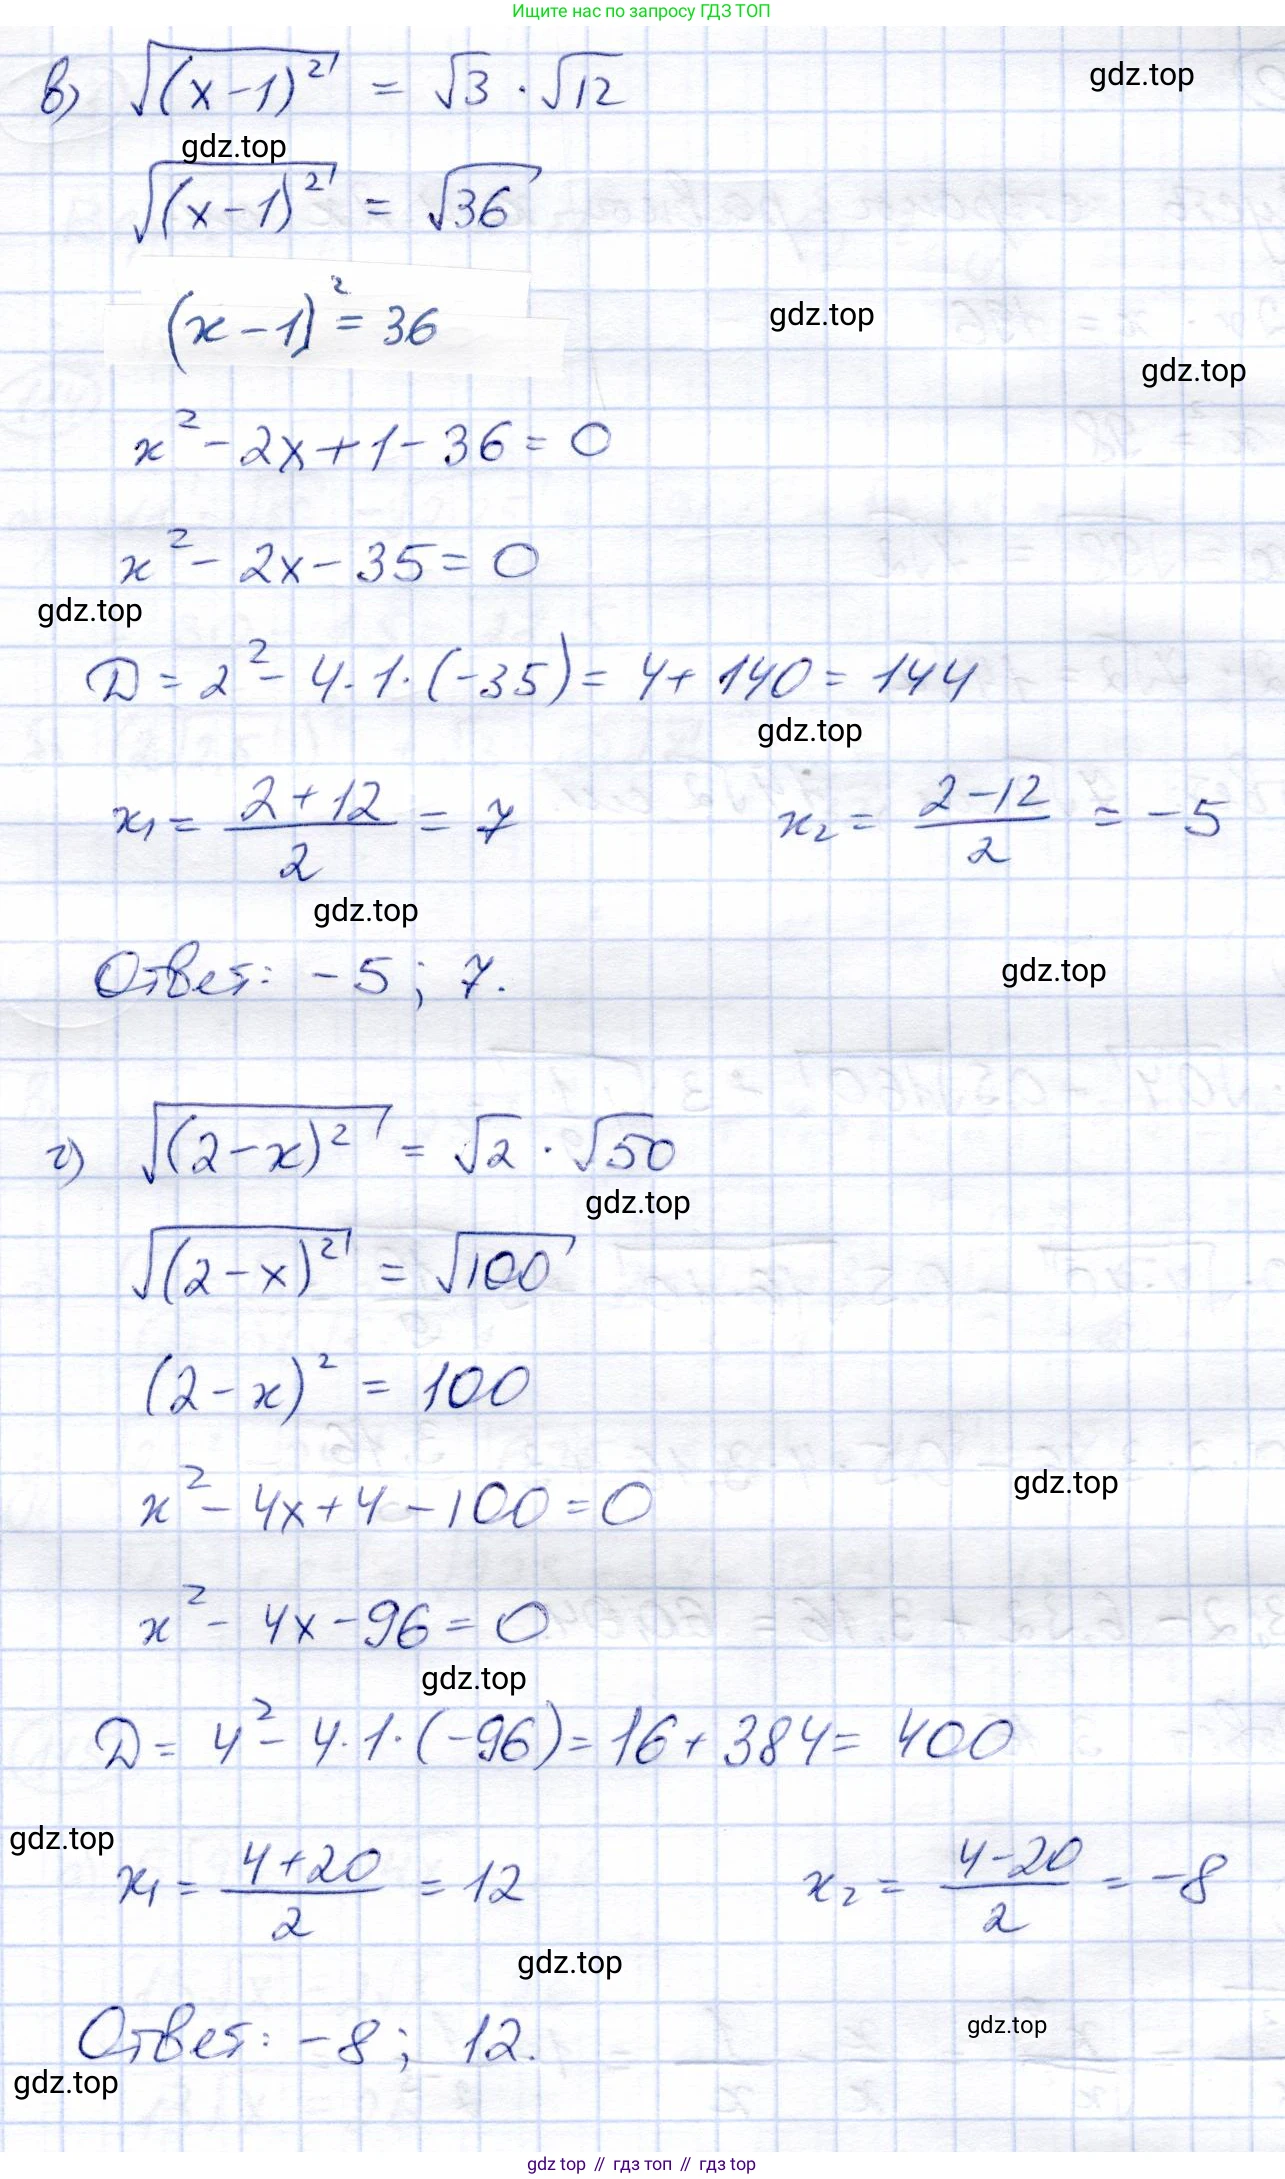 Ищите нас по запросу ГДЗ ТОП
в) √(x-1)² = √3 · √12
gdz.top
gdz.top
√(x-1)² = √36
(x-1)² = 36
gdz.top
gdz.top
x² - 2x + 1 - 36 = 0
x² - 2x - 35 = 0
gdz.top
D = 2² - 4·1·(-35) = 4 + 140 = 144
gdz.top
x₁ = (2+12)/2 = 7    x₂ = (2-12)/2 = -5
gdz.top
Ответ: -5; 7.
gdz.top
г) √(2-x)² = √2 · √50
gdz.top
√(2-x)² = √100
(2-x)² = 100
x² - 4x + 4 - 100 = 0
gdz.top
x² - 4x - 96 = 0
gdz.top
D = 4² - 4·1·(-96) = 16 + 384 = 400
gdz.top
x₁ = (4+20)/2 = 12    x₂ = (4-20)/2 = -8
gdz.top
Ответ: -8; 12.
gdz.top
gdz.top
gdz top // гдз топ // гдз top